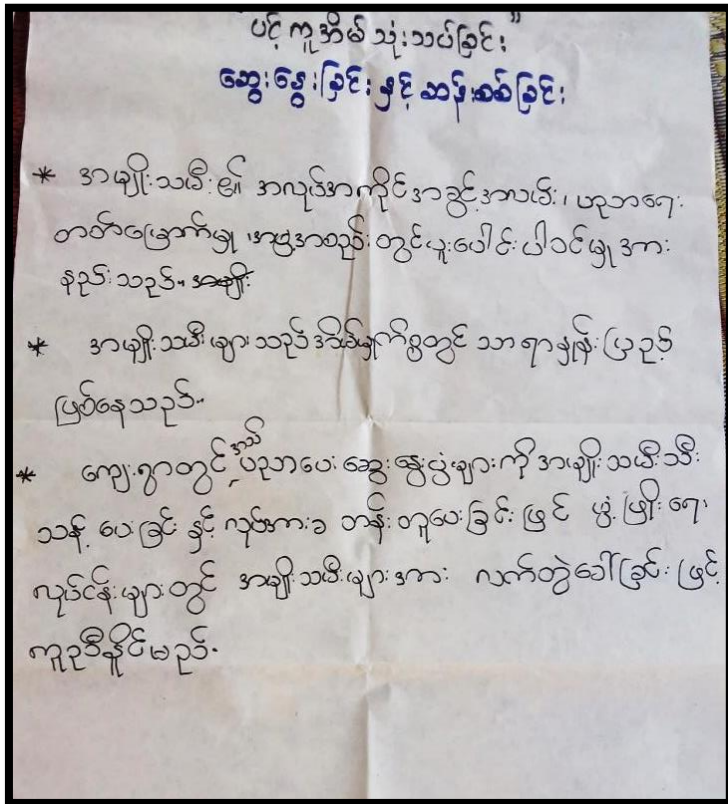 "ပင့်ကူအိမ်သုံးသပ်ခြင်း"
ဆွေးနွေးခြင်းနှင့် ဆန်းစစ်ခြင်း
* အမျိုးသမီး၏ အလုပ်အကိုင်အခွင့်အလမ်း၊ ပညာရေး
တတ်မြောက်မှု၊ အဖွဲ့အစည်းတွင်ပူးပေါင်းပါဝင်မှုအား
နည်းသည်။ အမျိုး
* အမျိုးသမီးများသည် အိမ်မှုကိစ္စတွင် သာရာနှုန်းပြည့်
ဖြစ်နေသည်။
* ကျေးရွာတွင် အသိပညာပေးဆွေးနွေးပွဲများကို အမျိုးသမီးသီး
သန့် ပေးခြင်း နှင့် လုပ်အားခ တန်းတူပေးခြင်းဖြင့် ဖွံ့ဖြိုးရေး
လုပ်ငန်းများတွင် အမျိုးသမီးများအား လက်တွဲခေါ်ခြင်းဖြင့်
ကူညီနိုင်မည်။